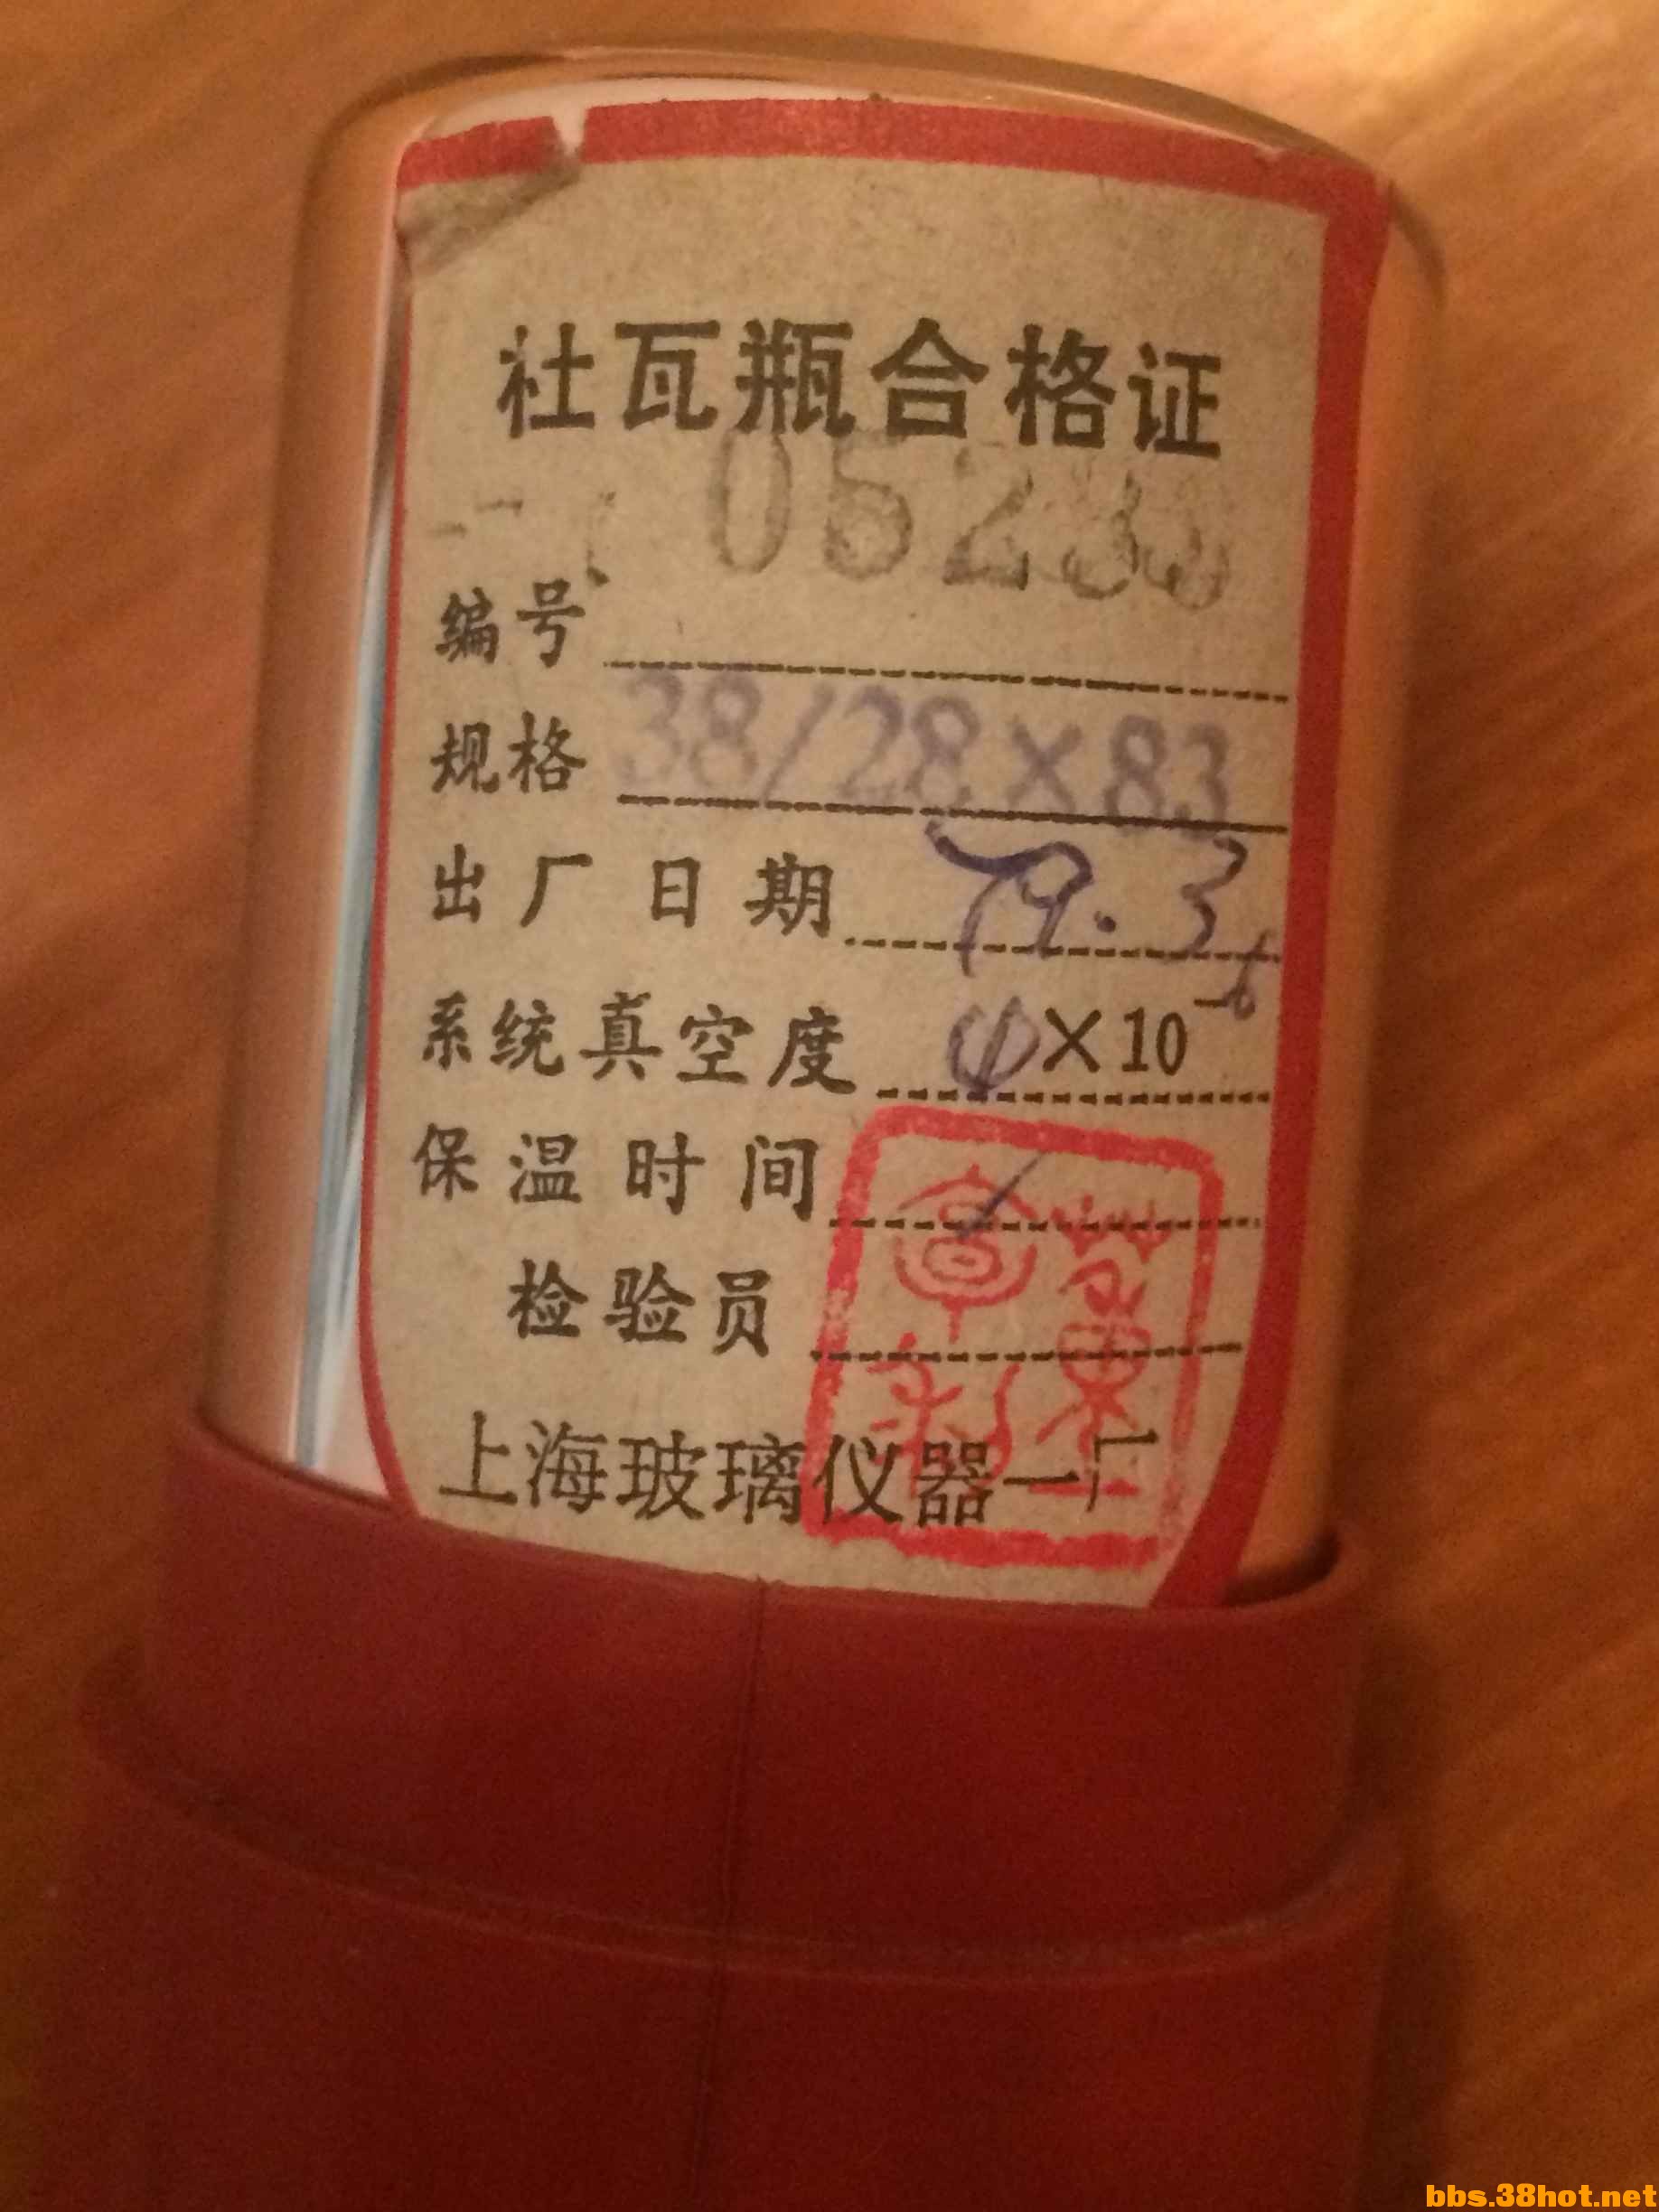 杜瓦瓶合格证
编号 0523
规格 38/28×83
出厂日期 79.3
系统真空度 4×10⁻⁶
保温时间
检验员
上海玻璃仪器一厂
bbs.38hot.net